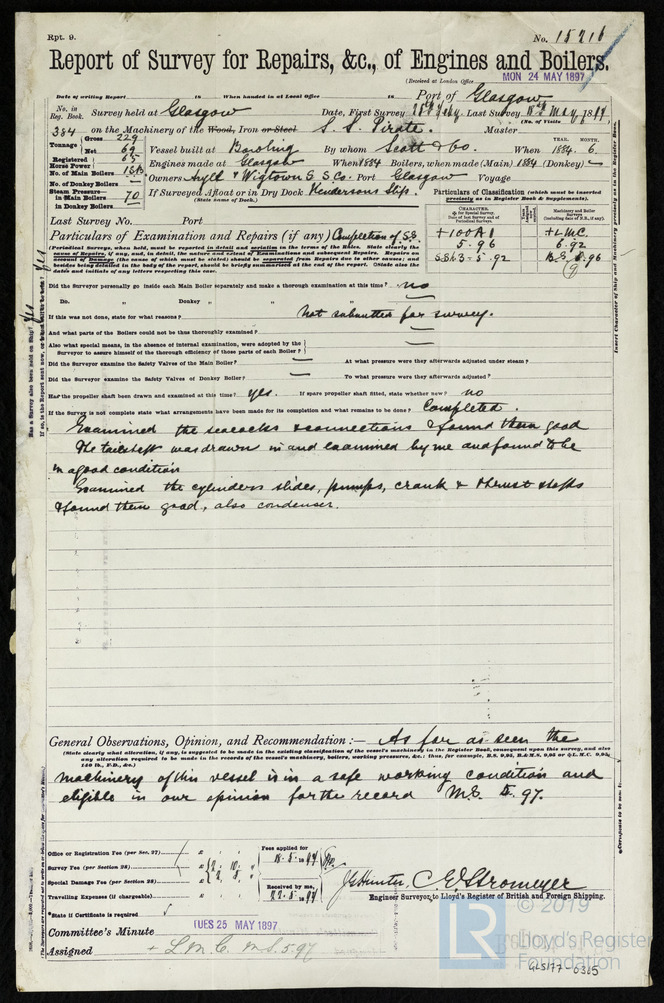 Rpt. 9.
No. 15216
Report of Survey for Repairs, &c., of Engines and Boilers.
(Received at London Office
MON 24 MAY 1897
Date of writing Report 18 When handed in at Local Office 18 Port of Glasgow
No. in Reg. Book. Survey held at Glasgow Date, First Survey Last Survey May 1897
(No. of Visits
384 on the Machinery of the Wood, Iron or Steel S. S. Pirate. Master
Tonnage Gross 229
Net 69 Vessel built at Bowling By whom Scott & Co. When YEAR. 1884. MONTH. 6.
Registered Horse Power 65 Engines made at Glasgow When 1884 Boilers, when made (Main) 1884 (Donkey) —
No. of Main Boilers Owners Argll & Wigtown S S Co. Port Glasgow Voyage
No. of Donkey Boilers —
Steam Pressure in Main Boilers 70 If Surveyed Afloat or in Dry Dock Hendersons Slip.
in Donkey Boilers (State name of Dock.)
Particulars of Classification (which must be inserted precisely as in Register Book & Supplements).
Last Survey No. Port
CHARACTER.
Machinery and Boiler Surveys
+100A1
5.96
+LMC.
6.92
Particulars of Examination and Repairs (if any) Completion of S.S.
(Periodical Surveys, when held, must be reported in detail and seriatim in the terms of the Rules. State clearly the
cause of Repairs, if any, and, in detail, the nature and extent of Examinations and subsequent Repairs. Repairs on
account of Damage (the cause of which must be stated) should be separated from Repairs due to other causes; and
besides being detailed in the body of the report, should be briefly summarised at the end of the report. State also the
dates and initials of any letters respecting this case.
Did the Surveyor personally go inside each Main Boiler separately and make a thorough examination at this time? no
Do. „ Donkey „ „ „ —
If this was not done, state for what reasons? Not submitted for survey.
And what parts of the Boilers could not be thus thoroughly examined? —
Also what special means, in the absence of internal examination, were adopted by the
Surveyor to assure himself of the thorough efficiency of those parts of each Boiler? —
Did the Surveyor examine the Safety Valves of the Main Boiler? — At what pressure were they afterwards adjusted under steam?
Did the Surveyor examine the Safety Valves of Donkey Boiler? — To what pressure were they afterwards adjusted?
Has the propeller shaft been drawn and examined at this time? yes. If spare propeller shaft fitted, state whether new? no
If the Survey is not complete state what arrangements have been made for its completion and what remains to be done? Completed.
Examined the seacocks & connections & found them good
The tailshaft was drawn in and examined by me and found to be
in a good condition
Examined the cylinders slides, pumps, crank & thrust shafts
& found them good, also condenser.
General Observations, Opinion, and Recommendation:— As far as seen the
(State clearly what alteration, if any, is suggested to be made in the existing classification of the vessel's machinery in the Register Book, consequent upon this survey, and also
any alteration required to be made in the records of the vessel's machinery, boilers, working pressure, &c.: thus, for example, B.S. 9,95, B.&M.S. 9,95 or &L.M.C. 9,95,
140 lb., F.D., &c.)
machinery of this vessel is in a safe working condition and
eligible in our opinion for the record M.S. 5. 97.
Office or Registration Fee (per Sec. 27)
Survey Fee (per Section 28) £ 2 : 10 :
Special Damage Fee (per Section 28)
Travelling Expenses (if chargeable)
Fees applied for
18.5.1897
Received by me,
22.5.1897
J S Hunter, C. E. Stromeyer
Engineer Surveyor, to Lloyd's Register of British and Foreign Shipping.
*State if Certificate is required
Committee's Minute TUES 25 MAY 1897
Assigned + L.M.C. M.S. 5.97
© 2019
LR
Lloyd's Register
Foundation
GLS177-0365